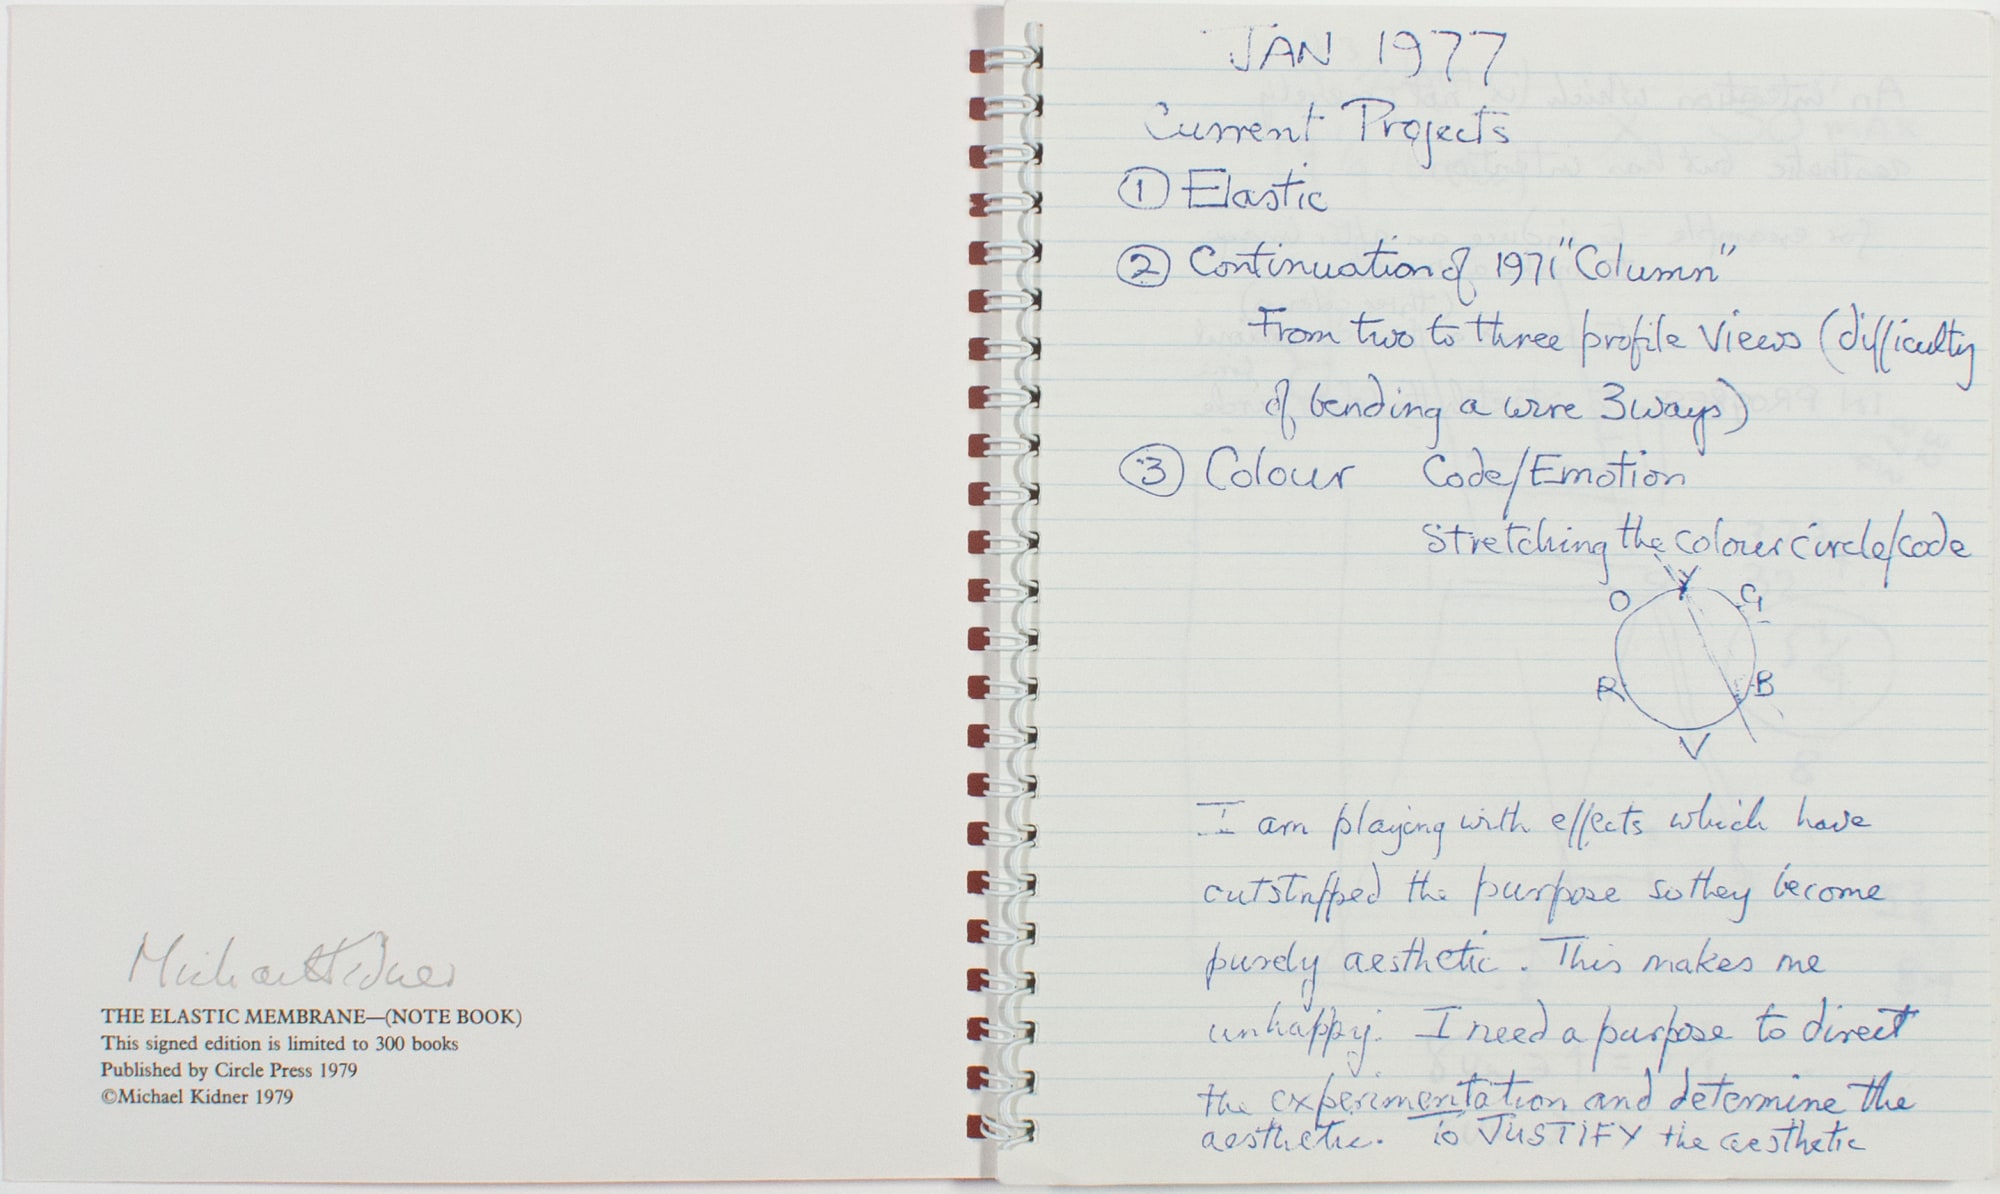 Michael Kidner
THE ELASTIC MEMBRANE—(NOTE BOOK)
This signed edition is limited to 300 books
Published by Circle Press 1979
©Michael Kidner 1979
JAN 1977
Current Projects
① Elastic
② Continuation of 1971 "Column"
From two to three profile views (difficulty
of bending a wire 3 ways)
③ Colour Code/Emotion
Stretching the colour circle/code
Y
O G
R B
V
I am playing with effects which have
outstripped the purpose so they become
purely aesthetic. This makes me
unhappy. I need a purpose to direct
the experimentation and determine the
aesthetic. To JUSTIFY the aesthetic